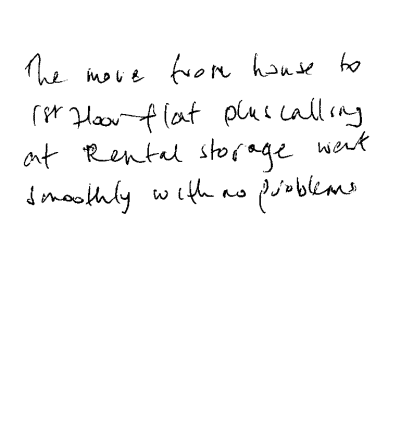 The move from house to
1st Floor flat plus calling
at Rental storage went
smoothly with no problems